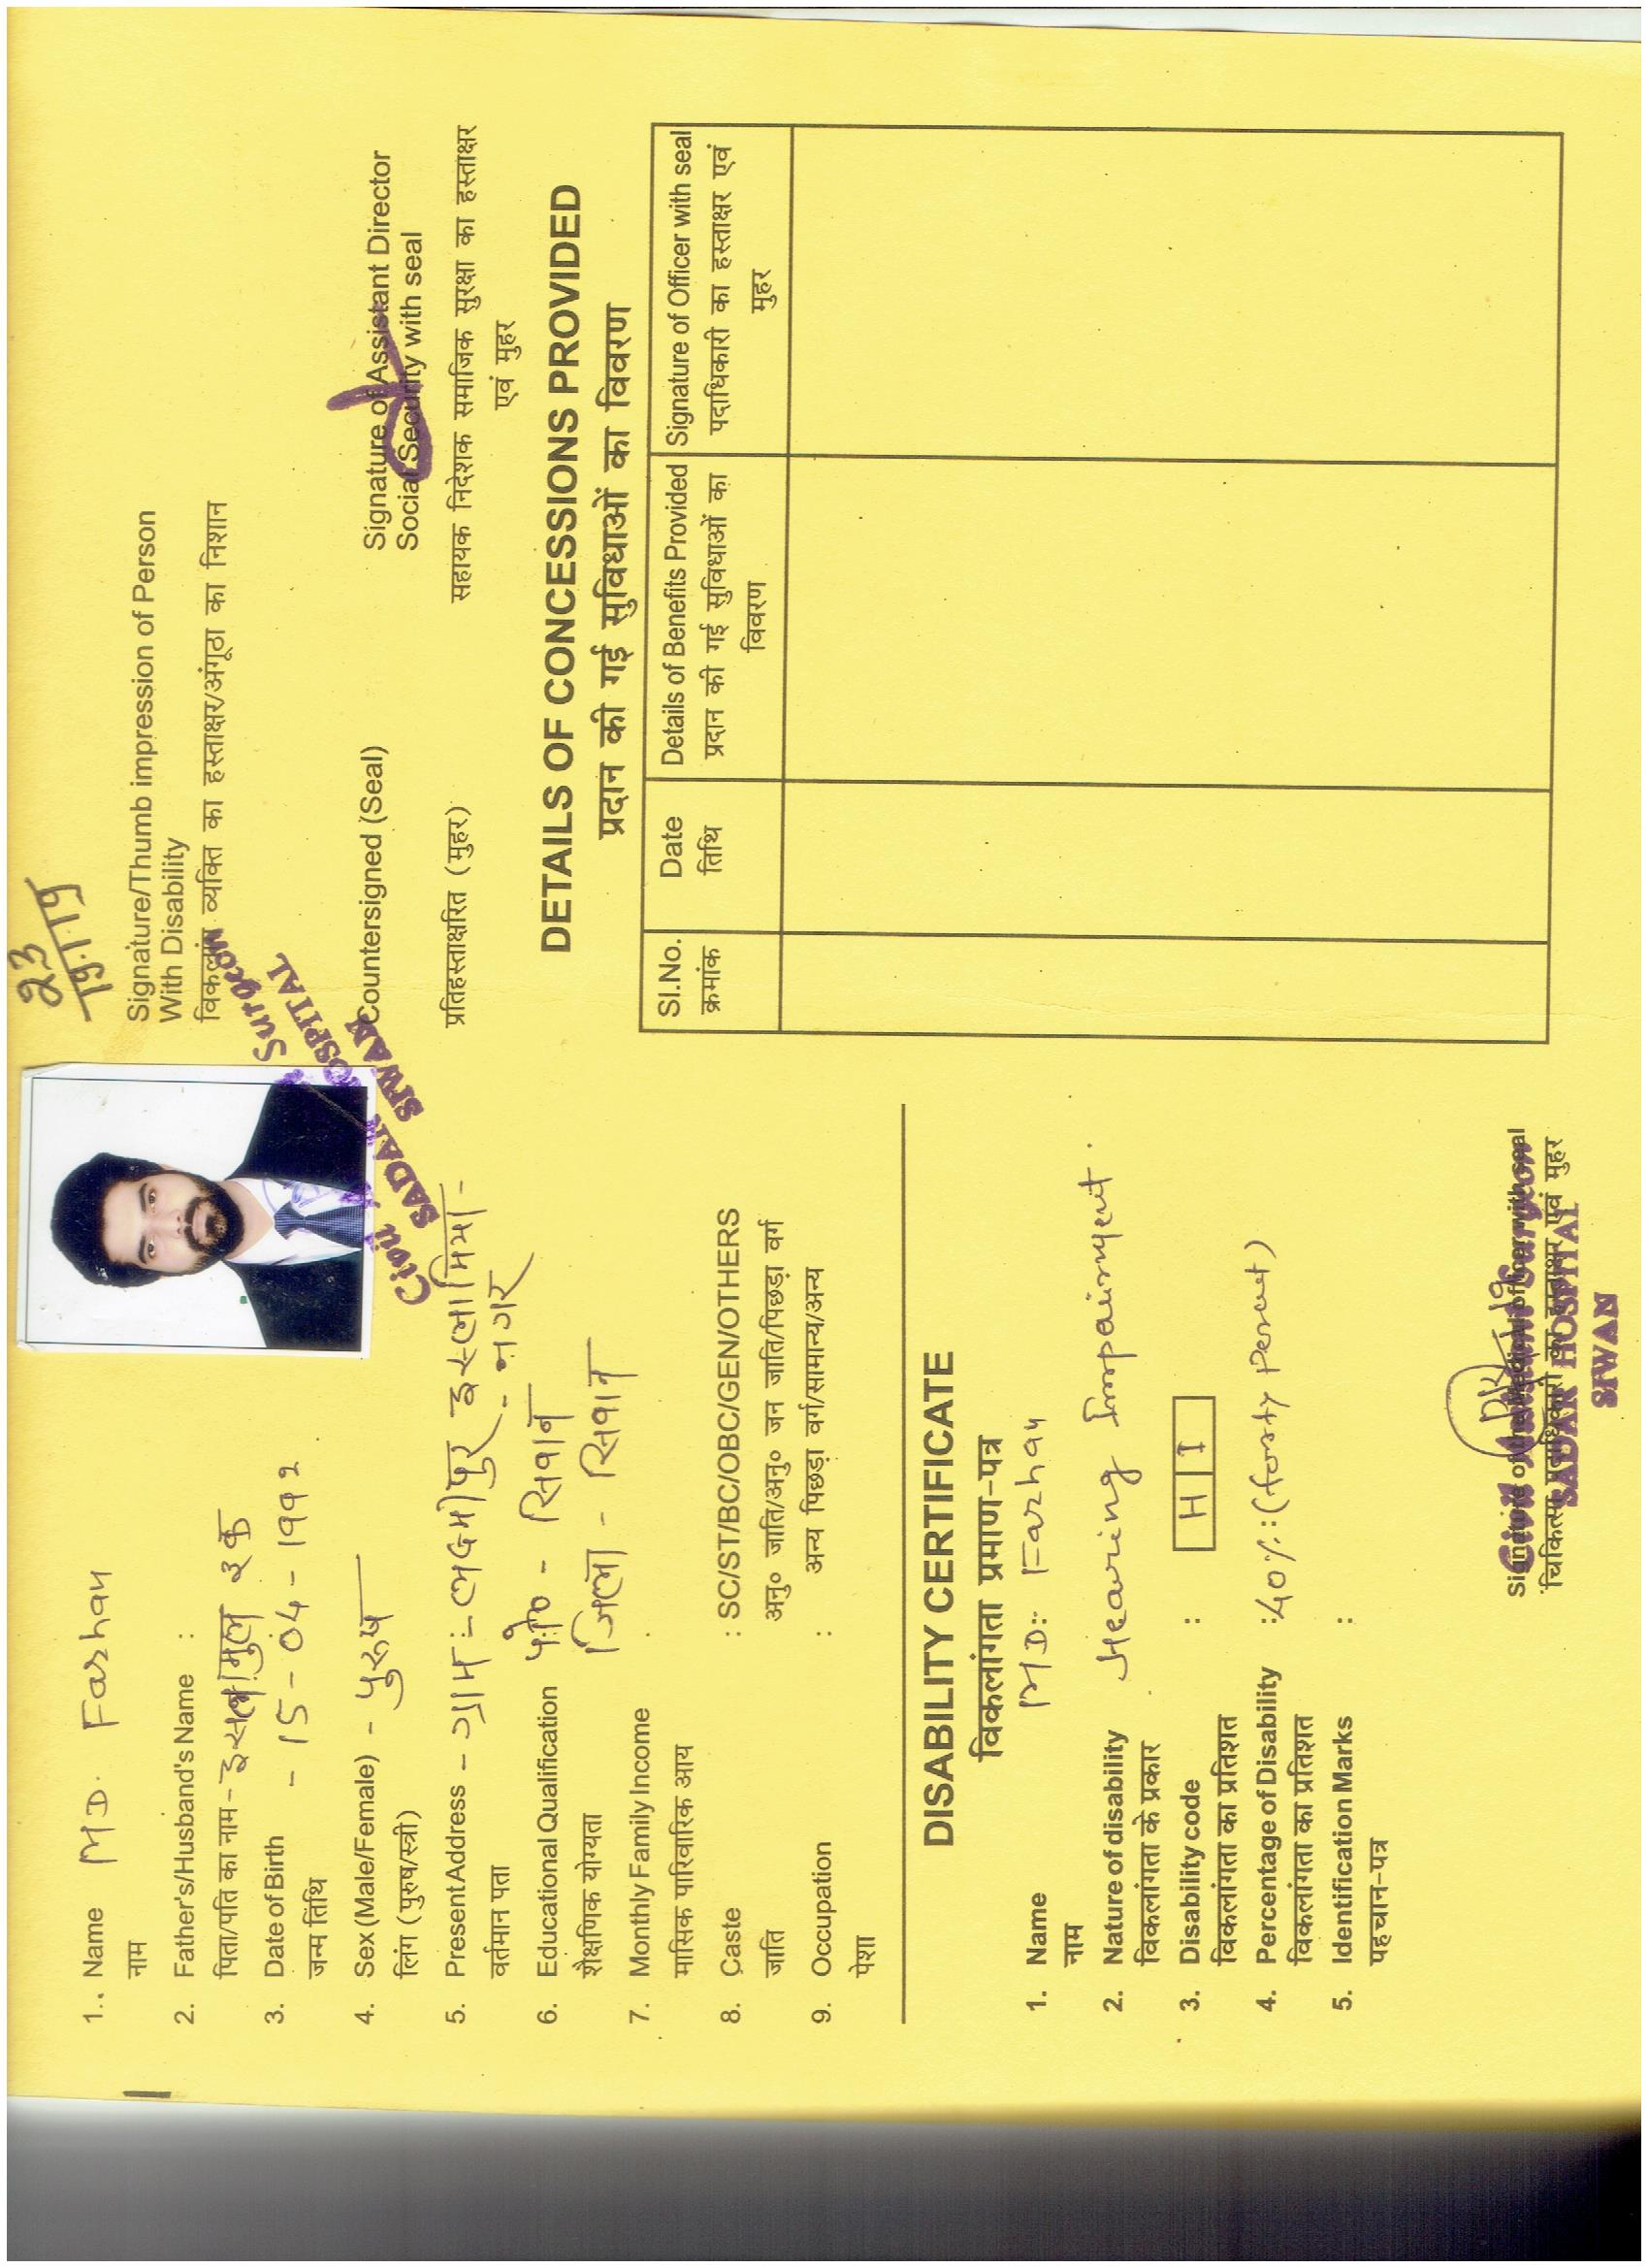 1. Name MD. Farhan
नाम
2. Father's/Husband's Name :
पिता/पति का नाम - इसलामुल हक
3. Date of Birth - 15-04-1992
जन्म तिथि
4. Sex (Male/Female) - पुरुष
लिंग (पुरुष/स्त्री)
5. Present Address - ग्राम :- लक्ष्मीपुर इस्लामिया -
वर्तमान पता - नगर
6. Educational Qualification पो० - सिवान
शैक्षणिक योग्यता जिला - सिवान
7. Monthly Family Income
मासिक पारिवारिक आय
8. Caste : SC/ST/BC/OBC/GEN/OTHERS
जाति अनु० जाति/अनु० जन जाति/पिछड़ा वर्ग
9. Occupation : अन्य पिछड़ा वर्ग/सामान्य/अन्य
पेशा
Civil Surgeon
SADAR HOSPITAL
SIWAN
DISABILITY CERTIFICATE
विकलांगता प्रमाण-पत्र
1. Name MD: Farhan
नाम
2. Nature of disability Hearing Impairment.
विकलांगता के प्रकार
3. Disability code : H I
विकलांगता का प्रतिशत
4. Percentage of Disability : 40%: (forty Percent)
विकलांगता का प्रतिशत
5. Identification Marks :
पहचान-पत्र
Signature of the Medical officer with seal
चिकित्सा पदाधिकारी का हस्ताक्षर एवं मुहर
SADAR HOSPITAL
SIWAN
23
19.1.19
Signature/Thumb impression of Person
With Disability
विकलांग व्यक्ति का हस्ताक्षर/अंगूठा का निशान
Countersigned (Seal) Signature of Assistant Director
Social Security with seal
प्रतिहस्ताक्षरित (मुहर) सहायक निदेशक समाजिक सुरक्षा का हस्ताक्षर
एवं मुहर
DETAILS OF CONCESSIONS PROVIDED
प्रदान की गई सुविधाओं का विवरण
Sl.No. Date Details of Benefits Provided Signature of Officer with seal
क्रमांक तिथि प्रदान की गई सुविधाओं का पदाधिकारी का हस्ताक्षर एवं
विवरण मुहर